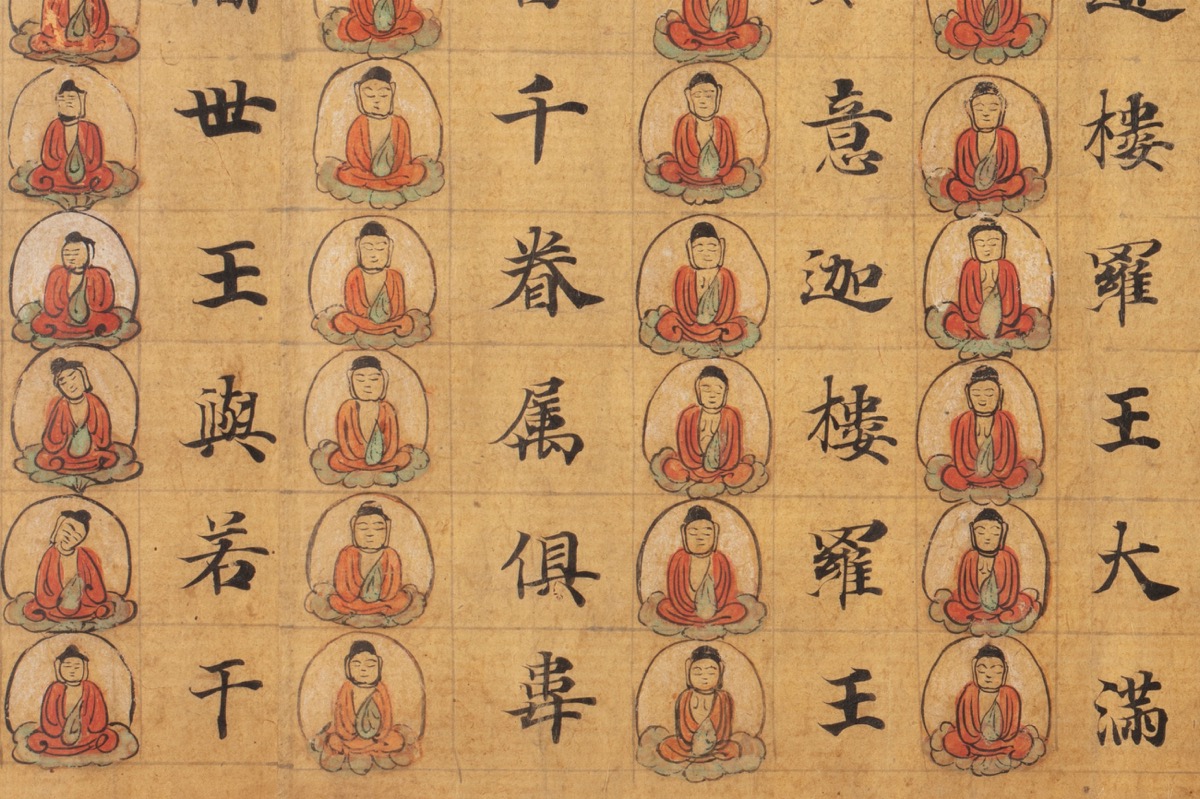 樓羅王大滿
意迦樓羅王
千眷属俱韋
世王與若干